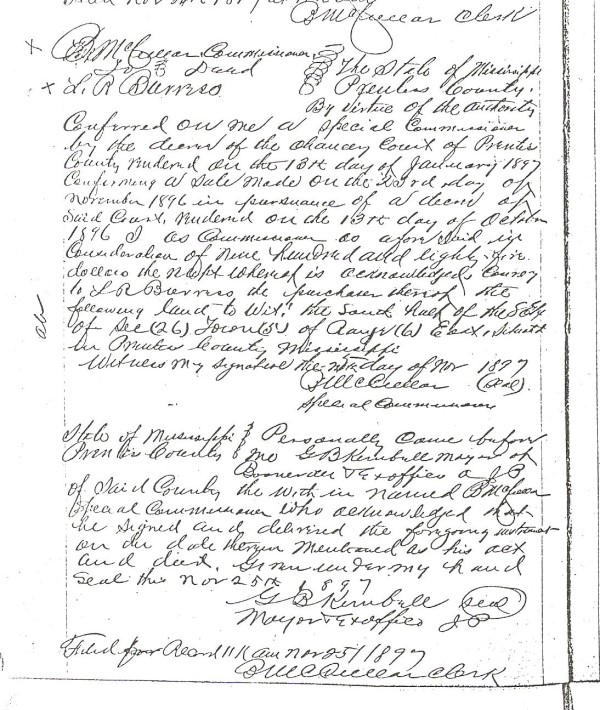 McCullar Clerk
x B McCullar Commissioner
To Deed
x L. R Burress
The State of Mississippi
Prentiss County.
By virtue of the authority
Conferred on me a Special Commissioner
by the decree of the Chancery Court of Prentiss
County rendered on the 13th day of January 1897
Confirming a Sale made on the 23rd day of
November 1896 in pursuance of a decree of
Said Court, rendered on the 13th day of October
1896 I as Commissioner as aforesaid in
Consideration of Nine hundred and eighty five
dollars the receipt whereof is acknowledged, Convey
to L R Burress the purchaser thereof the
following land to wit: the South half of the
of Sec (26) Town (5) of Range (6) East, Situated
in Prentiss County Mississippi
Witness my signature the day of Nov 1897
B McCullar (Seal)
Special Commissioner
State of Mississippi
Prentiss County
Personally Came before
me G B Kimbell Mayor of
Booneville & Exoffico a J P
of Said County the within named B McCullar
Special Commissioner who acknowledged that
he signed and delivered the foregoing instrument
on the date therein mentioned as his act
and deed. Given under my hand
Seal this Nov 25th 1897
G B Kimbell Seal
Mayor & Exoffico J P
Filed for Record 11 am Nov 25/1897
B McCullar Clerk